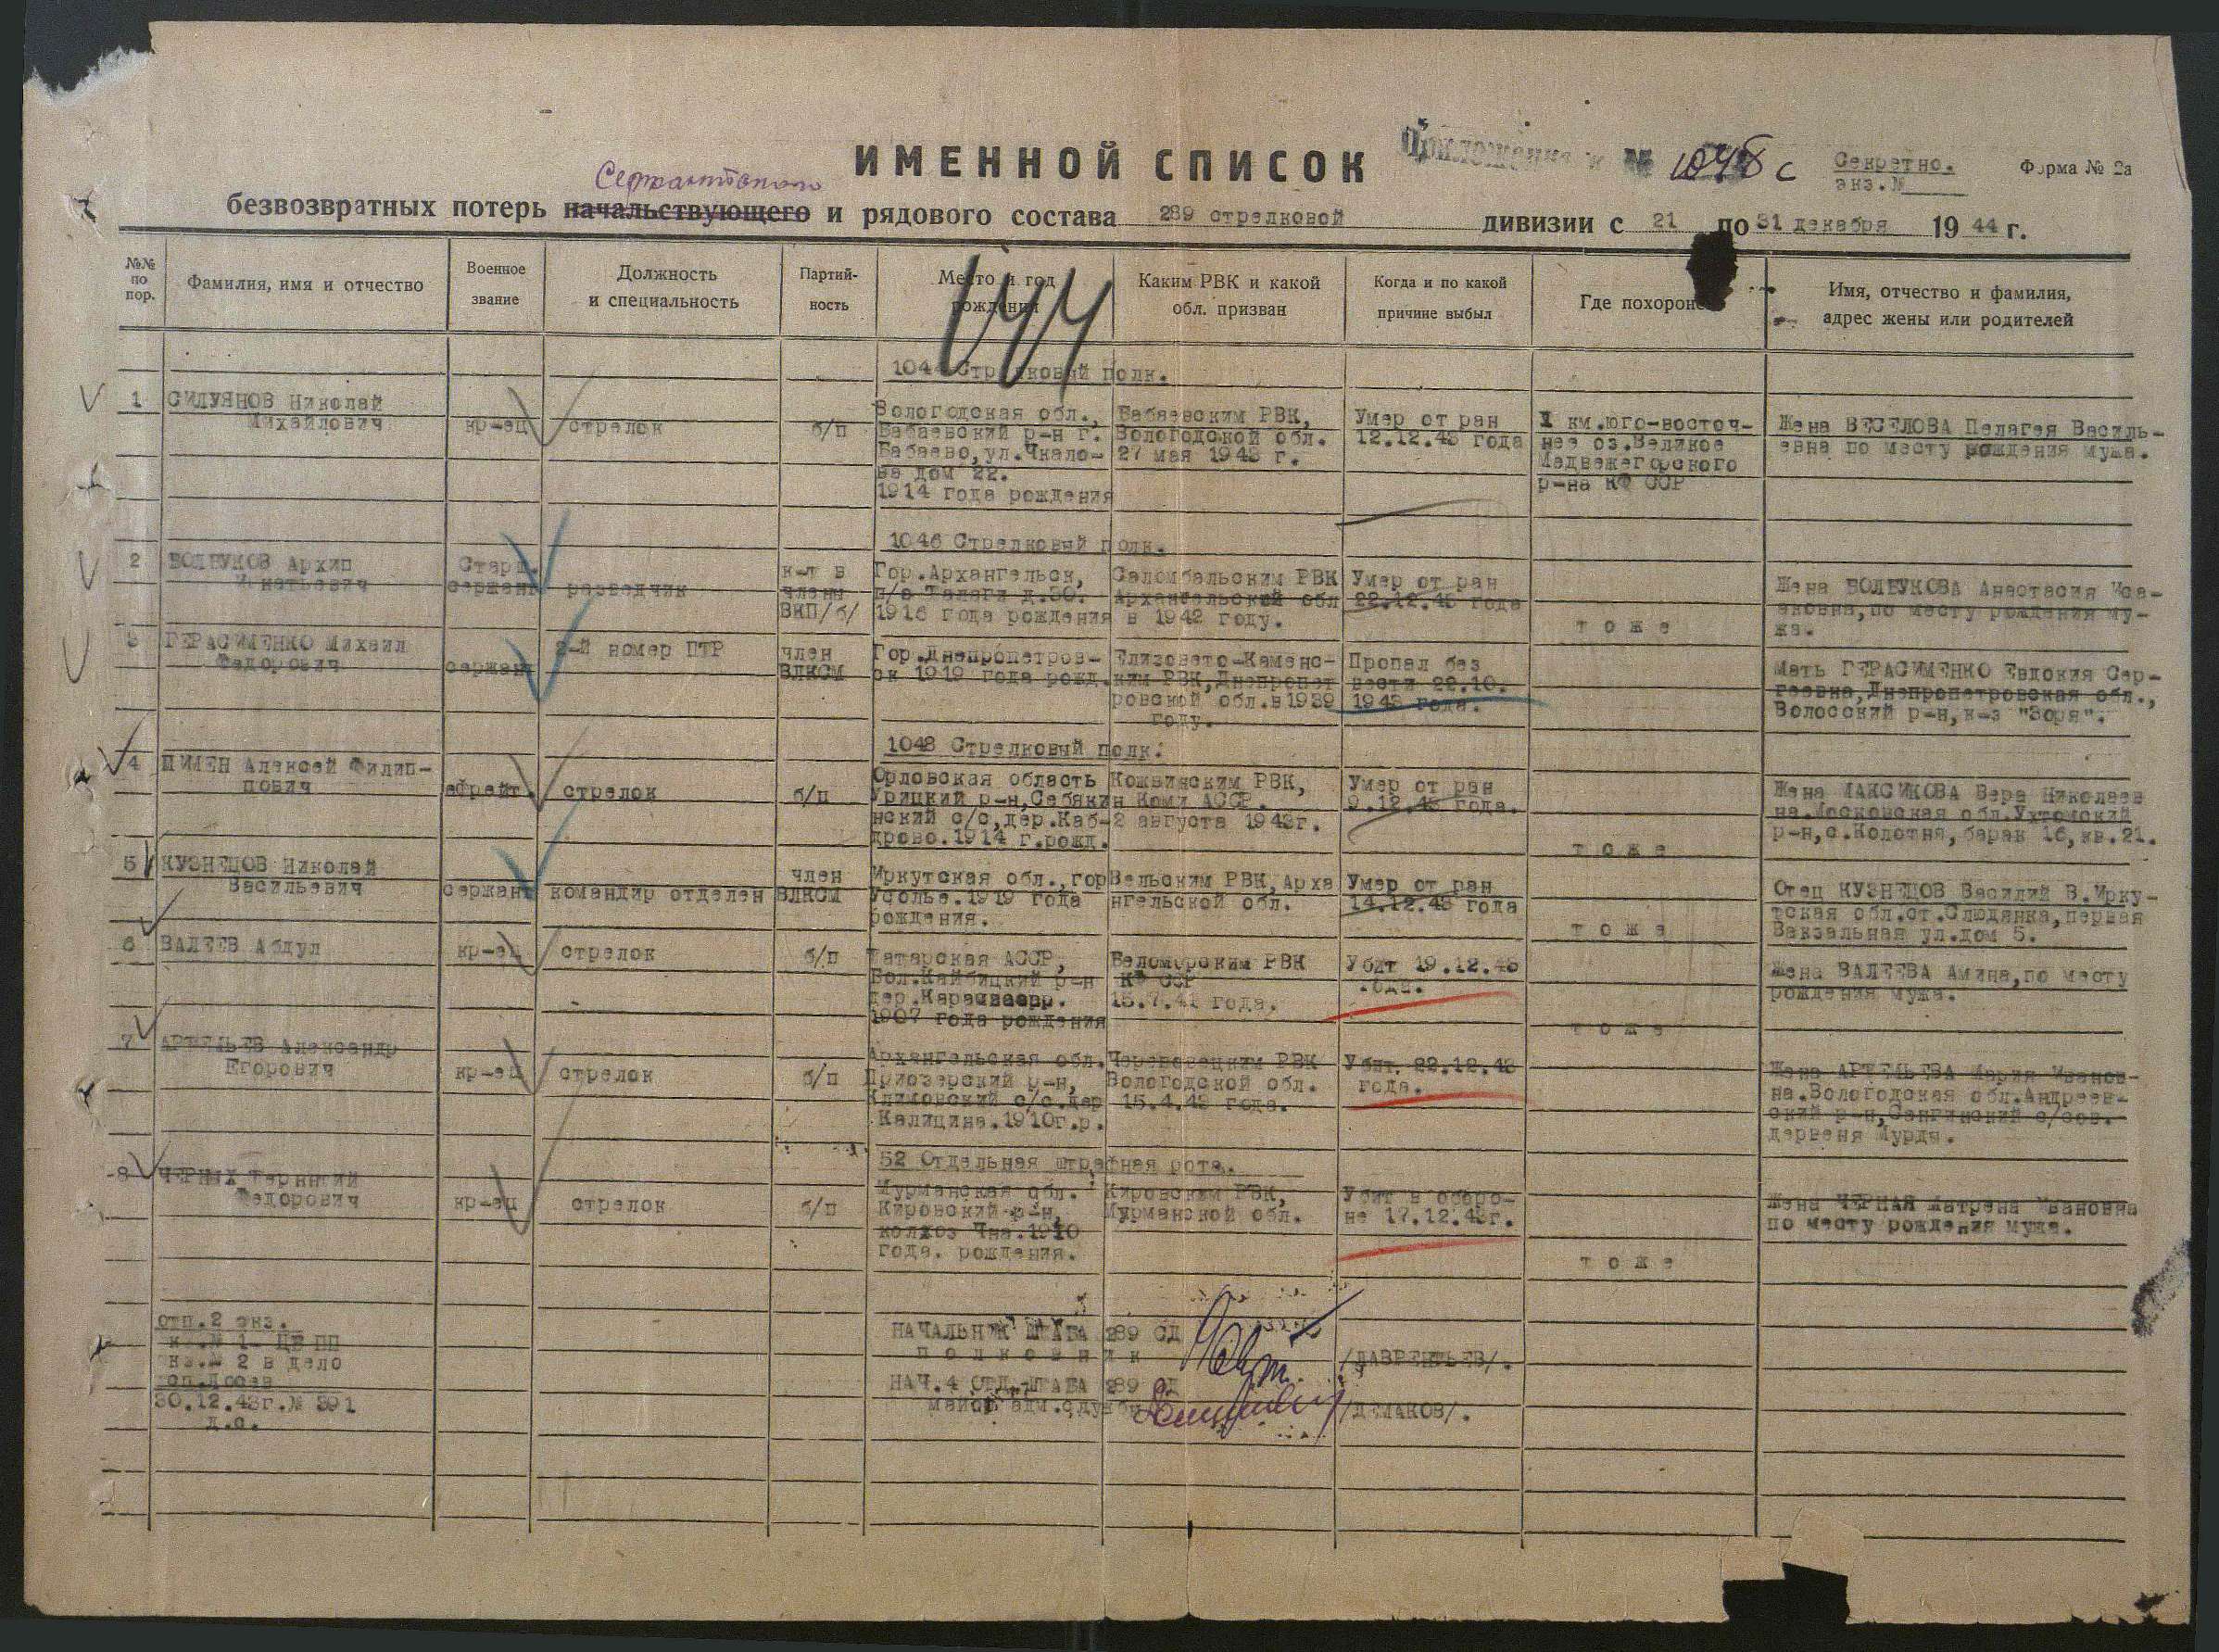 ИМЕННОЙ СПИСОК
№ 1048 с
Секретно.
экз.№
Форма № 2а
Сержантского
безвозвратных потерь начальствующего и рядового состава 289 стрелковой дивизии с 21 по 31 декабря 1944 г.
№№ по пор.
Фамилия, имя и отчество
Военное звание
Должность и специальность
Партий-ность
Место и год рождения
Каким РВК и какой обл. призван
Когда и по какой причине выбыл
Где похоронен
Имя, отчество и фамилия, адрес жены или родителей
1044 Стрелковый полк.
1
СИЛУЯНОВ Николай
Михайлович
кр-ец
стрелок
б/п
Вологодская обл.,
Бабаевский р-н г.
Бабаево, ул. Чкало-
ва дом 22.
1914 года рождения
Бабаевским РВК,
Вологодской обл.
27 мая 1943 г.
Умер от ран
12.12.43 года
1 км.юго-восточ-
нее оз.Великое
Медвежегорского
р-на КФ ССР
Жена ВЕСЕЛОВА Пелагея Василь-
евна по месту рождения мужа.
1046 Стрелковый полк.
2
БОЛБУКОВ Архип
Игнатьевич
Старш.
сержант
разведчик
к-т в
члены
ВКП/б/
Гор.Архангельск,
п/о Талаги д.50.
1916 года рождения
Саломбальским РВК
Архангельской обл
в 1942 году.
Умер от ран
22.12.43 года
тоже
Жена БОЛБУКОВА Анастасия Иса-
аковна, по месту рождения му-
жа.
3
ГЕРАСИМЕНКО Михаил
Федорович
сержант
2-й номер ПТР
член
ВЛКСМ
Гор.Днепропетров-
ск 1919 года рожд.
Елизовето-Каменс-
ким РВК, Днепропет
ровской обл.в 1939
году.
Пропал без
вести 22.10.
1943 года.
Мать ГЕРАСИМЕНКО Евдокия Сер-
геевна, Днепропетровская обл.,
Волосский р-н, к-з "Зоря".
1048 Стрелковый полк.
4
ПИМЕН Алексей Филип-
пович
ефрейт.
стрелок
б/п
Орловская область
Урицкий р-н, Себякин
нский с/с, дер.Каб-
дрово. 1914 г.рожд.
Кожвинским РВК,
Коми АССР.
2 августа 1943г.
Умер от ран
9.12.43 года.
тоже
Жена МАКСИКОВА Вера Николаев
на. Московская обл. Ухтомский
р-н, с.Колотня, барак 16, кв.21.
5
КУЗНЕЦОВ Николай
Васильевич
сержант
командир отделен
член
ВЛКСМ
Иркутская обл., гор
Усолье. 1919 года
рождения.
Вельским РВК, Арха
нгельской обл.
Умер от ран
14.12.43 года
тоже
Отец КУЗНЕЦОВ Василий В. Ирку-
тская обл.ст.Слюдянка, первая
Вакзальная ул.дом 5.
6
ВАЛЕЕВ Абдул
кр-ец
стрелок
б/п
Татарская АССР,
Бол.Кайбицкий р-н
1907 года рождения
Беломорским РВК
КФ ССР
15.7.41 года.
Убит 19.12.43
года.
тоже
Жена ВАЛЕЕВА Амина, по месту
рождения мужа.
7
АРТЕМЬЕВ Александр
Егорович
кр-ец
стрелок
б/п
Архангельская обл.
Приозерский р-н,
Климовский с/с.дер
Калицина. 1910г.р.
Череповецким РВК
Вологодской обл.
15.4.43 года.
Убит 22.12.43
года.
Жена АРТЕМЬЕВА Мария Иванов-
на. Вологодская обл. Андреев-
ский р-н, Сангинский с/сов.
деревня Мурда.
52 Отдельная штрафная рота.
8
ЧЕРНЫХ Терентий
Федорович
кр-ец
стрелок
б/п
Мурманская обл.
Кировский р-н,
колхоз Чна. 1910
года. рождения.
Кировским РВК,
Мурманской обл.
Убит в оборо-
не 17.12.43г.
тоже
Жена ЧЕРНАЯ Матрена Ивановна
по месту рождения мужа.
отп.2 экз.
экз.№ 1- ЦБ ПП
экз.№ 2 в дело
30.12.43г.№ 391
д.о.
НАЧАЛЬНИК ШТАБА 289 СД
полковник
/ЛАВРЕНТЬЕВ/.
НАЧ.4 ОТД.ШТАБА 289 СД
майор адм.службы
/ДЕМАКОВ/.